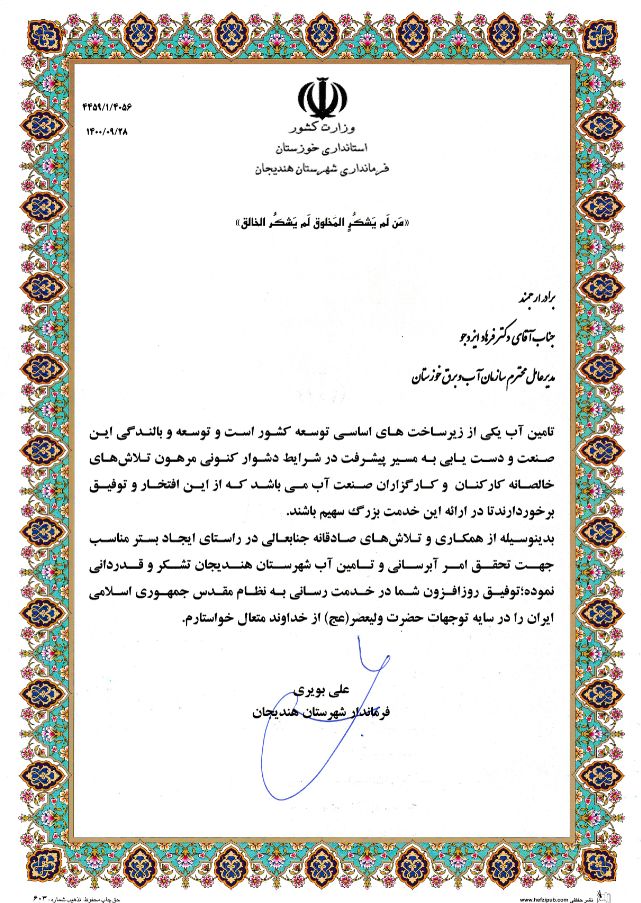 ۴۴۵۹/۱/۴۰۵۶
۱۴۰۰/۰۹/۲۸
وزارت کشور
استانداری خوزستان
فرمانداری شهرستان هندیجان
«مَن لَم یَشکُرِ المَخلوق لَم یَشکُر الخالق»
برادر ارجمند
جناب آقای دکتر فرهاد ایزدجو
مدیرعامل محترم سازمان آب و برق خوزستان
تامین آب یکی از زیرساخت های اساسی توسعه کشور است و توسعه و بالندگی این
صنعت و دست یابی به مسیر پیشرفت در شرایط دشوار کنونی مرهون تلاش‌های
خالصانه کارکنان و کارگزاران صنعت آب می باشد که از این افتخار و توفیق
برخوردارندتا در ارائه این خدمت بزرگ سهیم باشند.
بدینوسیله از همکاری و تلاش‌های صادقانه جنابعالی در راستای ایجاد بستر مناسب
جهت تحقق امر آبرسانی و تامین آب شهرستان هندیجان تشکر و قدردانی
نموده؛توفیق روزافزون شما در خدمت رسانی به نظام مقدس جمهوری اسلامی
ایران را در سایه توجهات حضرت ولیعصر(عج) از خداوند متعال خواستارم.
علی بویری
فرماندار شهرستان هندیجان
نشر حفظی www.hefzipub.com
حق چاپ محفوظ تذهیب شماره: ۶۰۳